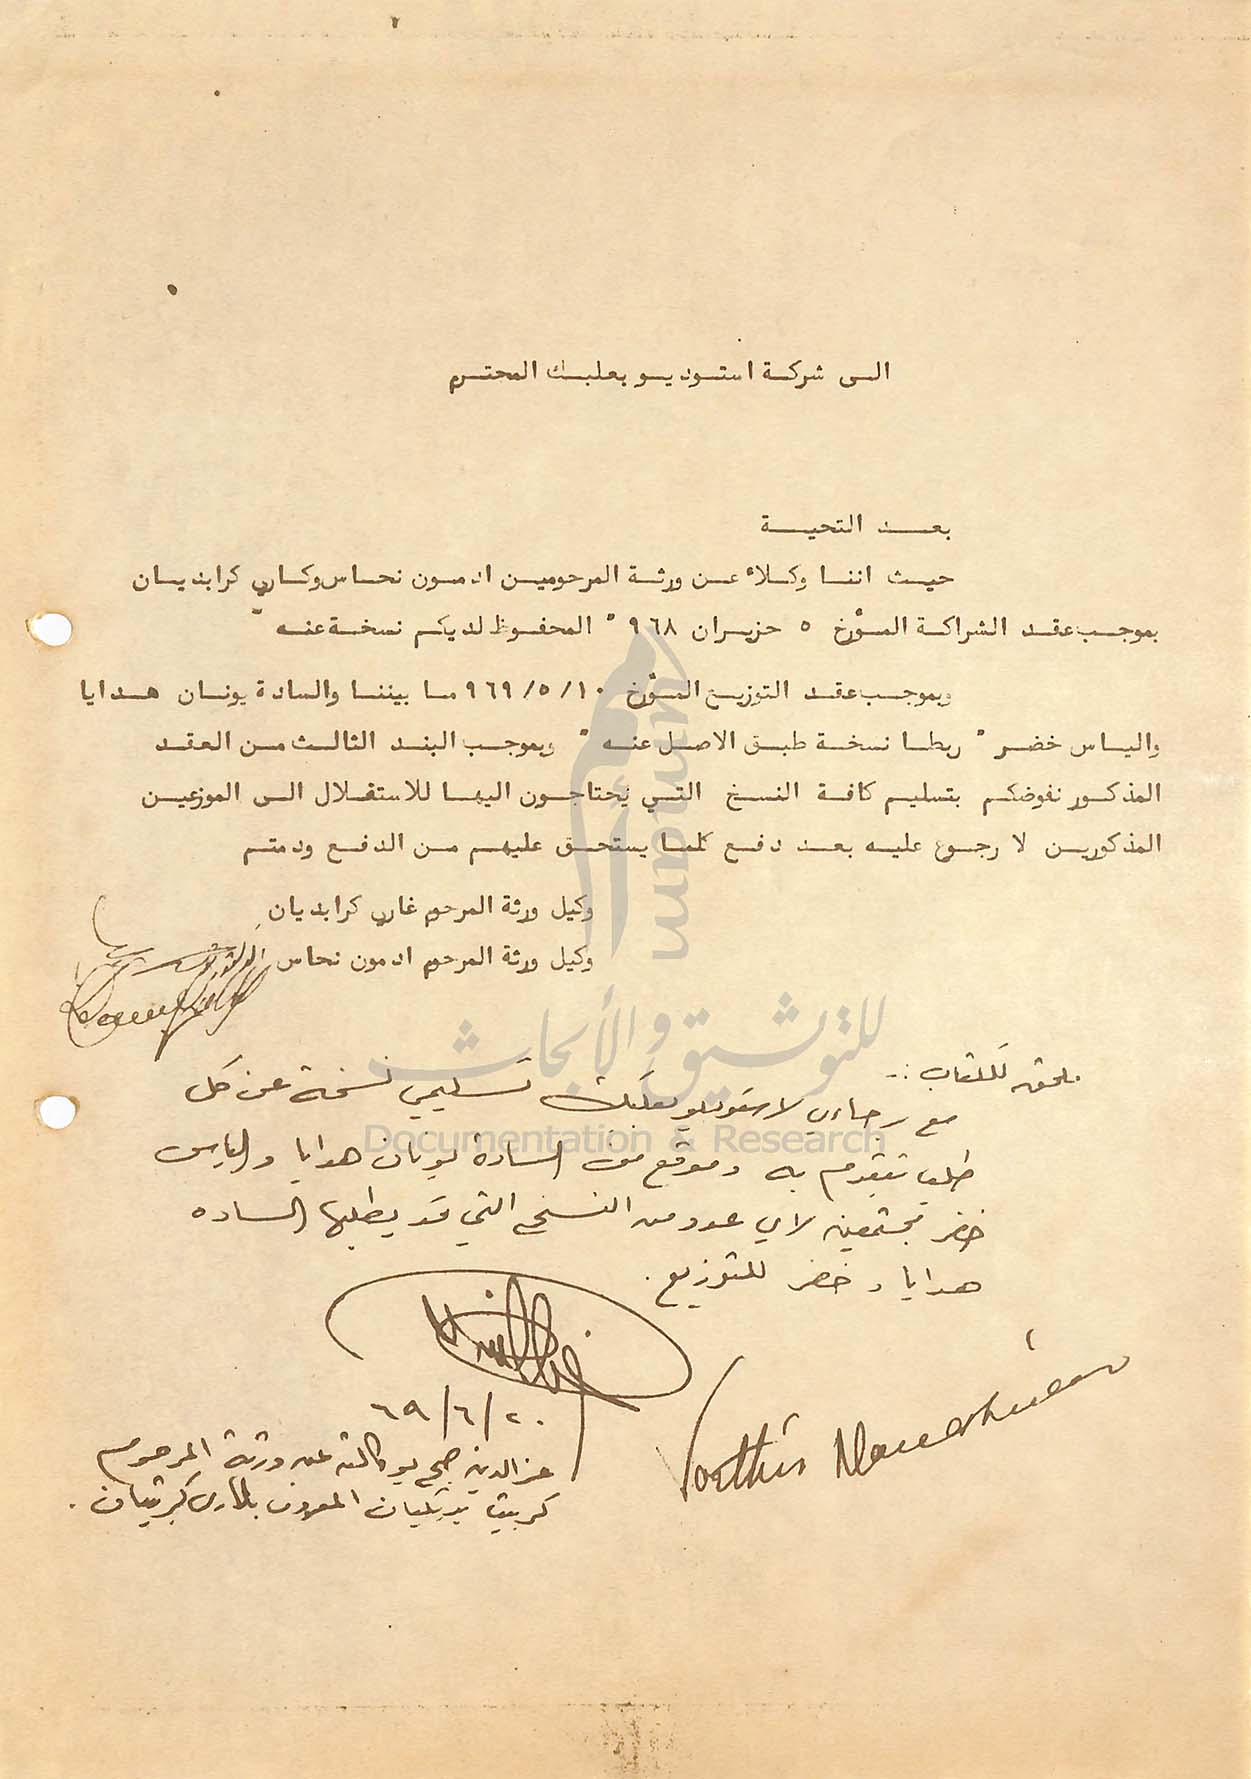 الى شركة استوديو بعلبك المحترم
بعد التحية
حيث اننا وكلاء عن ورثة المرحومين ادمون نحاس وكاري كرابديان
بموجب عقد الشراكة المؤرخ ٥ حزيران ٩٦٨ " المحفوظ لديكم نسخة عنه "
وبموجب عقد التوزيع المؤرخ ١٠/٥/٩٦٩ ما بيننا والسادة يونان هدايا
والياس خضر " ربطا نسخة طبق الاصل عنه " وبموجب البند الثالث من العقد
المذكور نفوضكم بتسليم كافة النسخ التي يحتاجون اليها للاستغلال الى الموزعين
المذكورين لا رجوع عليه بعد دفع كلما يستحق عليهم من الدفع ودمتم
وكيل ورثة المرحوم غاري كرابديان
وكيل ورثة المرحوم ادمون نحاس
ملحق للكتاب :-
مع رجاءي لاستوديو بعلبك تسليمي نسخة عن كل
طلب تتقدم به وموقع من السادة يونان هدايا والياس
خضر مجتمعين لاي عدد من النسخ التي قد يطلبها الساده
هدايا و خضر للتوزيع .
٢٠/٦/٦٩
عز الدين صبح بوكالته عن ورثة المرحوم
المعروف
umam
للتوثيق والأبحاث
Documentation & Research